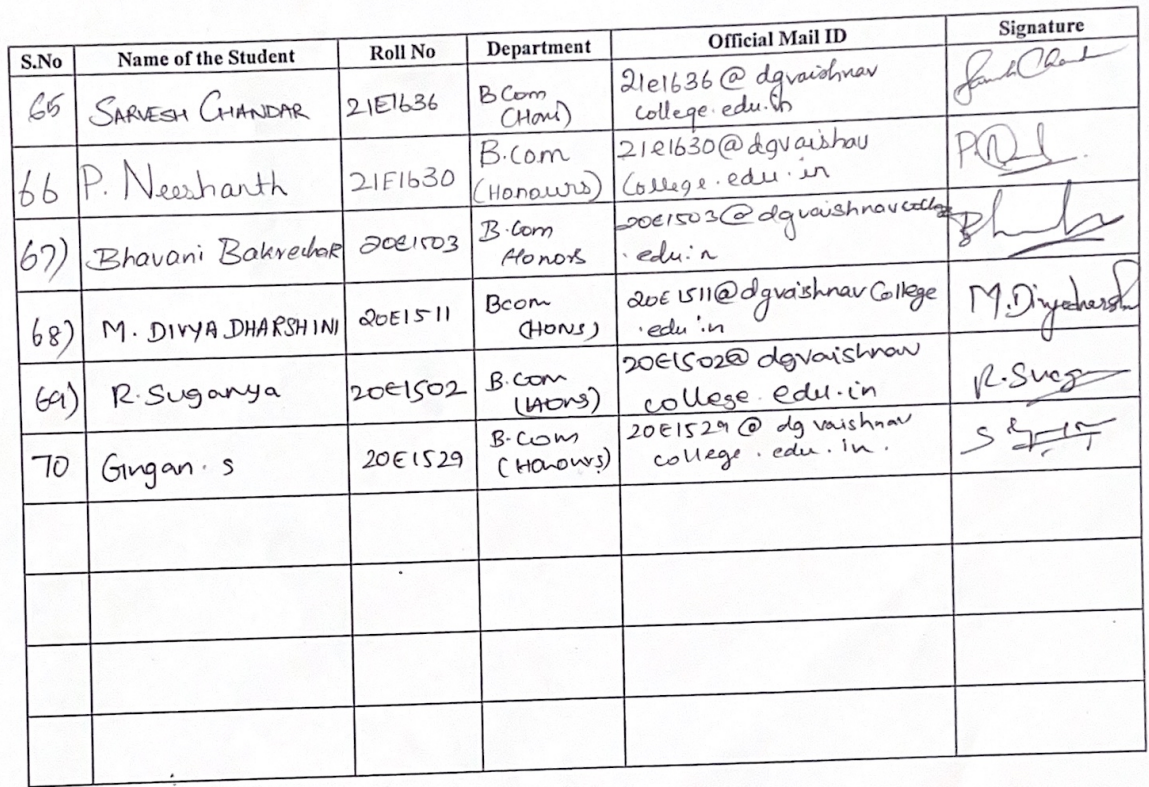 S.No Name of the Student Roll No Department Official Mail ID Signature
65 SARVESH CHANDAR 21E1636 B Com 21e1636@dgvaishnav
(Hons) college.edu.in
66 P. Neeshanth 21E1630 B.com 21e1630@dgvaishav
(Honours) College.edu.in
67) Bhavani Bakrechak 20E1503 B.Com 20E1503@dgvaishnavcollege
Honors .edu.in
68) M. DIVYA DHARSHINI 20E1511 Bcom 20E1511@dgvaishnavCollege M.Divyadharsh
(HONS) .edu.in
69) R.Suganya 20E1502 B.com 20E1502@dgvaishnav R.Sug
(HONS) college.edu.in
70 Gingan.s 20E1529 B.Com 20E1529@dgvaishnav
(Honours) college.edu.in.